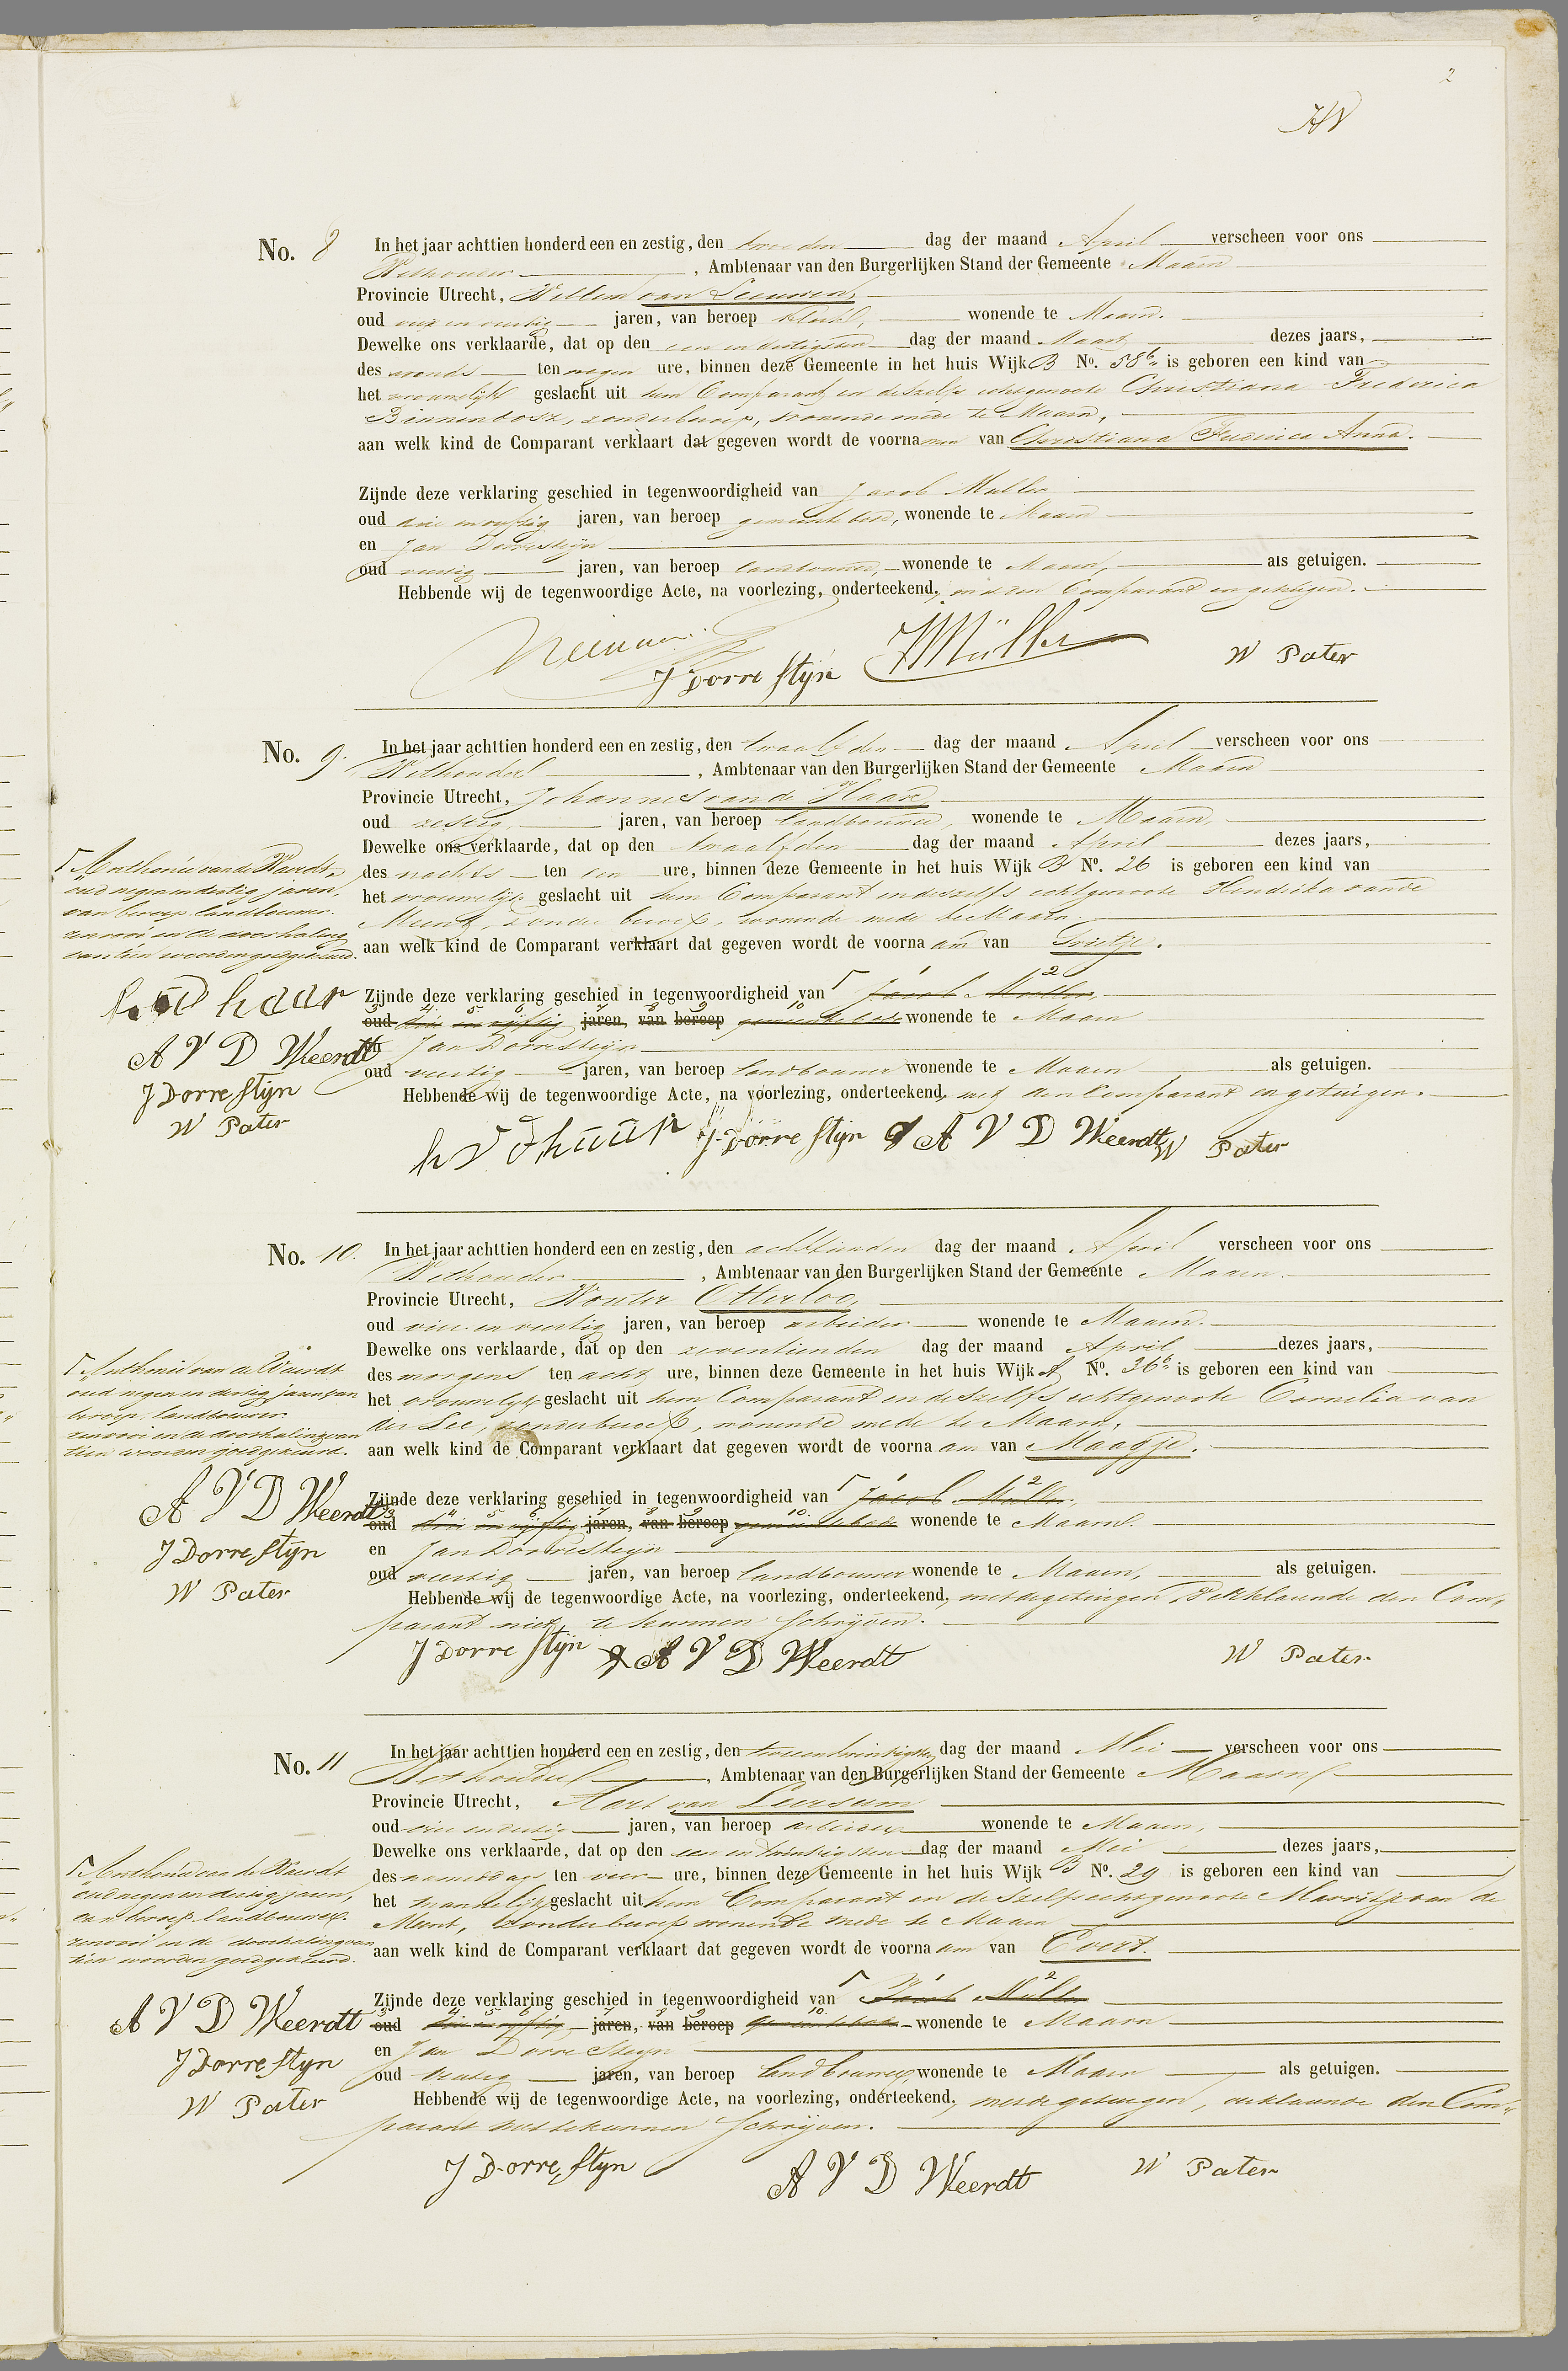 2
No. 8 In het jaar achttien honderd een en zestig, den tweeden dag der maand April verscheen voor ons
Wethouder, Ambtenaar van den Burgerlijken Stand der Gemeente Maarn
Provincie Utrecht, Willem van Leeuwen,
oud vier en veertig jaren, van beroep wonende te Maarn.
Dewelke ons verklaarde, dat op den een en dertigsten dag der maand Maart dezes jaars,
des avonds ten negen ure, binnen deze Gemeente in het huis Wijk B No. 58b is geboren een kind van
het vrouwelijk geslacht uit hem Comparant en deszelfs echtgenoote Christiana Frederica
Binnendosz, zonder beroep, wonende mede te Maarn,
aan welk kind de Comparant verklaart dat gegeven wordt de voornamen van Christiana Frederica Anna.
Zijnde deze verklaring geschied in tegenwoordigheid van Jacob Muller
oud drie en vijftig jaren, van beroep gemeentebode, wonende te Maarn
en Jan Dorresteijn
oud veertig jaren, van beroep landbouwer, wonende te Maarn, als getuigen.
Hebbende wij de tegenwoordige Acte, na voorlezing, onderteekend, met den Comparant en getuigen.
J Dorrestijn JMüller W Pater
No. 9. In het jaar achttien honderd een en zestig, den twaalfden dag der maand April verscheen voor ons
Wethouder, Ambtenaar van den Burgerlijken Stand der Gemeente Maarn
Provincie Utrecht, Johannes van de Haar
oud zestig, jaren, van beroep landbouwer, wonende te Maarn,
Dewelke ons verklaarde, dat op den twaalfden dag der maand April dezes jaars,
des nachts ten een ure, binnen deze Gemeente in het huis Wijk B No. 26 is geboren een kind van
het vrouwelijk geslacht uit hem Comparant en deszelfs echtgenoote Hendrika van de
Meent, zonder beroep, wonende mede te Maarn.
aan welk kind de Comparant verklaart dat gegeven wordt de voornaam van Grietje.
Anthonie van de Weerdt,
oud negen en dertig jaren,
van beroep landbouwer.
renvooi en de doorhaling
van tien woorden goedgekeurd.
h v d haar
A V D Weerdt
J Dorrestijn
W Pater
Zijnde deze verklaring geschied in tegenwoordigheid van Jacob Muller,
oud drie en vijftig jaren, van beroep gemeentebode wonende te Maarn
en Jan Dorresteijn
oud veertig jaren, van beroep landbouwer wonende te Maarn als getuigen.
Hebbende wij de tegenwoordige Acte, na voorlezing, onderteekend, met den Comparant en getuigen.
h v d haar J Dorrestijn A V D Weerdt W Pater
No. 10. In het jaar achttien honderd een en zestig, den achttienden dag der maand April verscheen voor ons
Wethouder, Ambtenaar van den Burgerlijken Stand der Gemeente Maarn
Provincie Utrecht, Wouter Otterloo,
oud vier en veertig jaren, van beroep arbeider wonende te Maarn.
Dewelke ons verklaarde, dat op den zeventienden dag der maand April dezes jaars,
des morgens ten acht ure, binnen deze Gemeente in het huis Wijk A No. 36b is geboren een kind van
het vrouwelijk geslacht uit hem Comparant en deszelfs echtgenoote Cornelia van
der Lee, zonder beroep, wonende mede te Maarn,
aan welk kind de Comparant verklaart dat gegeven wordt de voornaam van Maagje.
Anthonie van de Weerdt
oud negen en dertig jaren, van
beroep, landbouwer.
renvooi en de doorhaling van
tien woorden goedgekeurd.
A V D Weerdt
J Dorrestijn
W Pater
Zijnde deze verklaring geschied in tegenwoordigheid van Jacob Muller,
oud drie en vijftig jaren, van beroep gemeentebode wonende te Maarn.
en Jan Dorresteijn
oud veertig jaren, van beroep landbouwer wonende te Maarn, als getuigen.
Hebbende wij de tegenwoordige Acte, na voorlezing, onderteekend, met de getuigen, verklaarende den Com-
parant niet te kunnen schrijven.
J Dorrestijn A V D Weerdt W Pater
No. 11 In het jaar achttien honderd een en zestig, den tweeentwintigsten dag der maand Mei verscheen voor ons
Wethouder, Ambtenaar van den Burgerlijken Stand der Gemeente Maarn
Provincie Utrecht, Aart van Leersum
oud vier en dertig jaren, van beroep arbeider wonende te Maarn,
Dewelke ons verklaarde, dat op den een en twintigsten dag der maand Mei dezes jaars,
des namiddags ten vier ure, binnen deze Gemeente in het huis Wijk B No. 29 is geboren een kind van
het mannelijk geslacht uit hem Comparant en deszelfs echtgenoote Marritje van de
Meent, zonder beroep wonende mede te Maarn
aan welk kind de Comparant verklaart dat gegeven wordt de voornaam van Evert.
Anthonie van de Weerdt
oud negen en dertig jaren,
van beroep landbouwer.
renvooi en de doorhaling van
tien woorden goedgekeurd.
A V D Weerdt
J Dorrestijn
W Pater
Zijnde deze verklaring geschied in tegenwoordigheid van Jacob Muller
oud drie en vijftig jaren, van beroep gemeentebode wonende te Maarn
en Jan Dorresteijn
oud veertig jaren, van beroep landbouwer wonende te Maarn als getuigen.
Hebbende wij de tegenwoordige Acte, na voorlezing, onderteekend, met de getuigen, verklaarende den Com-
parant niet te kunnen schrijven.
J Dorrestijn A V D Weerdt W Pater